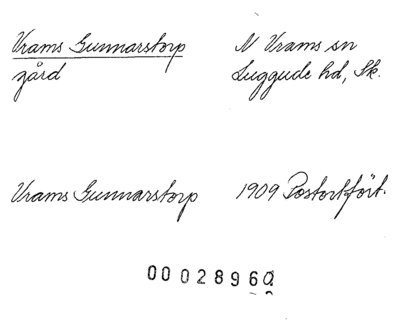 Vrams Gunnarstorp N Vrams sn
gård Luggude hd, Sk.
Vrams Gunnarstorp 1909 Postortsfört.